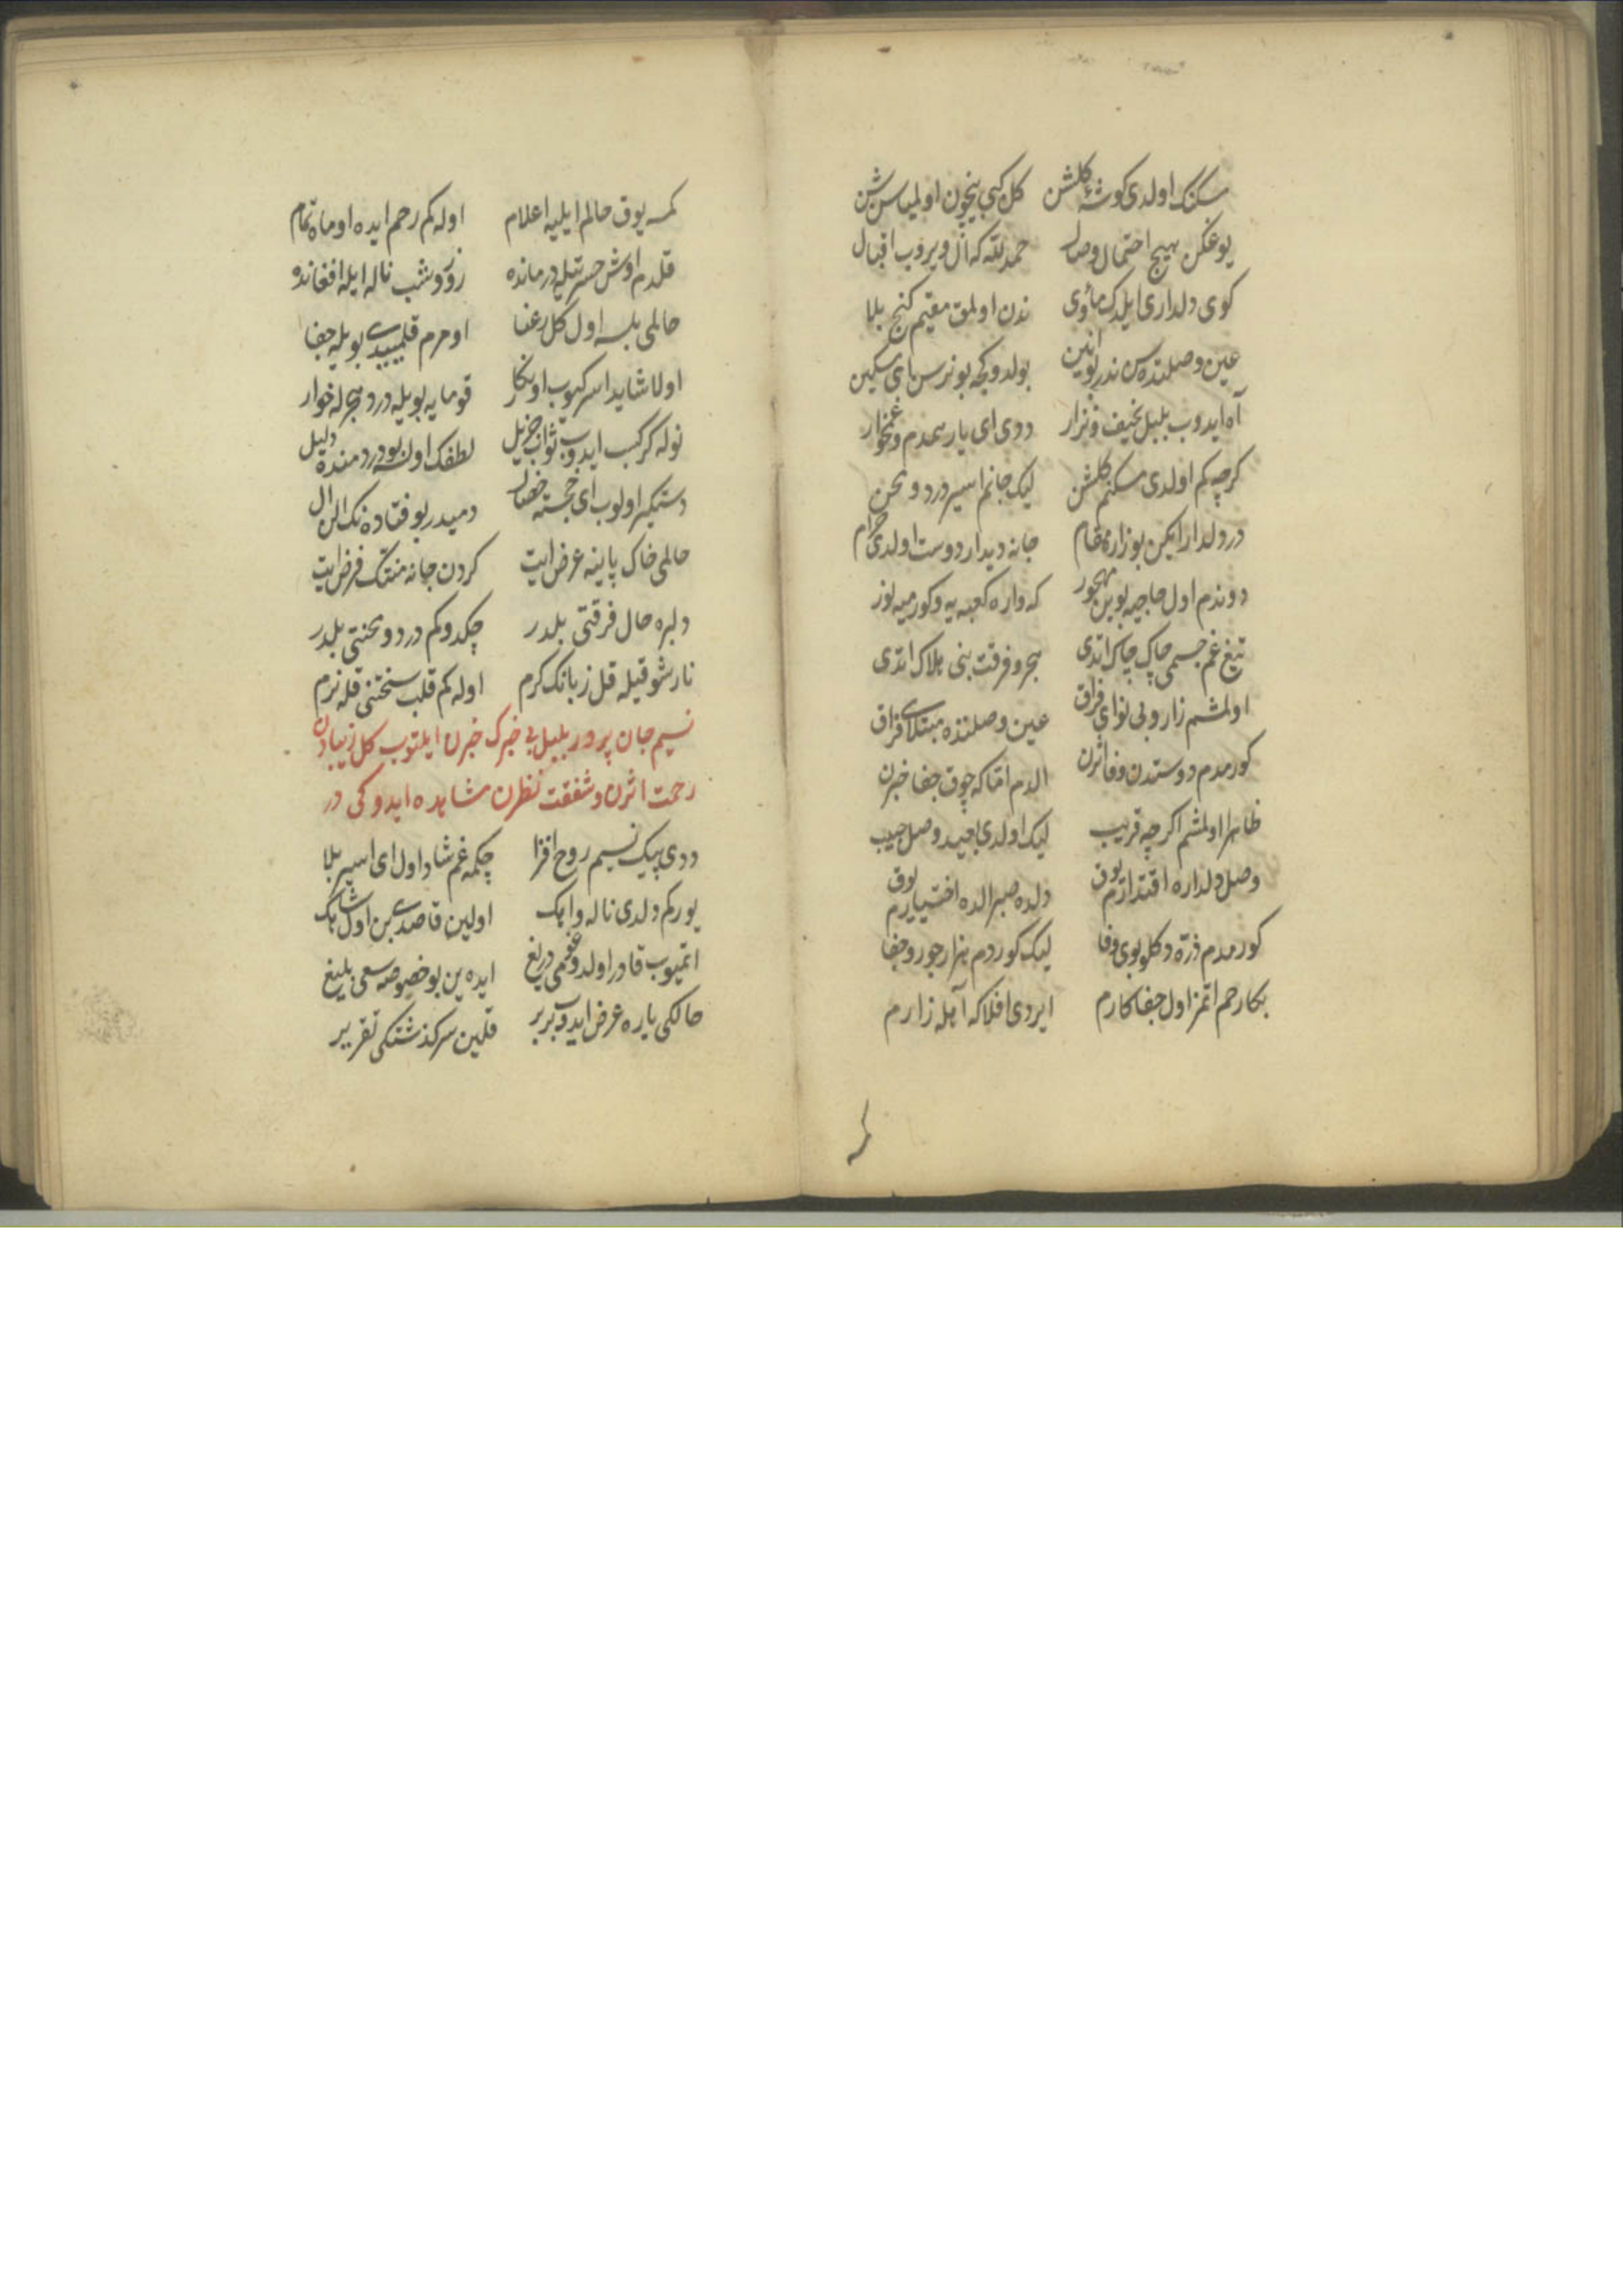 مسكنك اولدى كوشهٔ گلشن كل كبى نيچون اولمياسن شن
يوغكن هيچ احتمال وصال حمد لله كه ال ويروب اقبال
كوى دلدارى ايلدك مأوى ندن اولمق مقيم كنج بلا
عين وصلتده سن ندر بو انين بولدوكچه بو نرسن اى مسكين
آه ايدوب بلبل نحيف و نزار ددى اى يار همدم و غمخوار
كرچه كم اولدى مسكنم گلشن ليك جانم اسير درد و محن
در دلدار ايكن بو زاره مقام جانه ديدار دوست اولدى حرام
دوندم اول حاجيه بو بن مهجور كه واره كعبه يه و كورميه نور
تيغ غم جسمى چاك چاك اتدى هجر و فرقت بنى هلاك اتدى
اولمشم زار و بى نواى فراق عين وصلتده مبتلاى فراق
كورمدم دوستدن وفا اثرن الدم اما كه چوق جفا خبرن
ظاهرا اولمشم اكرچه قريب ليك اولدى بعيد وصل حبيب
وصل دلداره اقتدارم يوق دلده صبر الده اختيارم يوق
كورمدم ذره دكلو بوى وفا ليك كوردم هزار جور و جفا
بكا رحم اتمز اول جفاكارم ايردى افلاكه آهله زارم
كمسه يوق حالم ايليه اعلام اوله كم رحم ايده او ماه تمام
قلدم اوش حسرتيله درمانده روز و شب ناله ايله افغانده
حالمى بلسه اول كل رعنا اومرم قلميدى بويله جفا
اولا شايد اسركيوب او نكار قومايه بويله درد هجرله خوار
نوله كر كسب ايدوب ثواب جزيل لطفك اولسه بو دردمنده دليل
دستكير اولوب اى خجسته خصال دميدر بو فتاده نك الن ال
حالمى خاك پاينه عرض ايت كردن جانه منتك فرض ايت
دلبره حال فرقتى بلدر چكدوكم درد و محنتى بلدر
نار شوقيله قل زبانك كرم اوله كم قلب سختنى قله نرم
نسيم جان پرور بلبل بى خبرك خبرن ايلتوب كل زيبادن
رحمت اثرن و شفقت نظرن مشاهده ايدوكى در
ددى پيك نسيم روح افزا چكمه غم شاد اول اى اسير بلا
يوركم دلدى ناله و اهك اولين قاصدى بن اول شاهك
اتميوب قادر اولدوغمى دريغ ايده ين بو خصوصه سعى بليغ
حالكى ياره عرض ايدوب بر بر قلين سركذشتكى تقرير